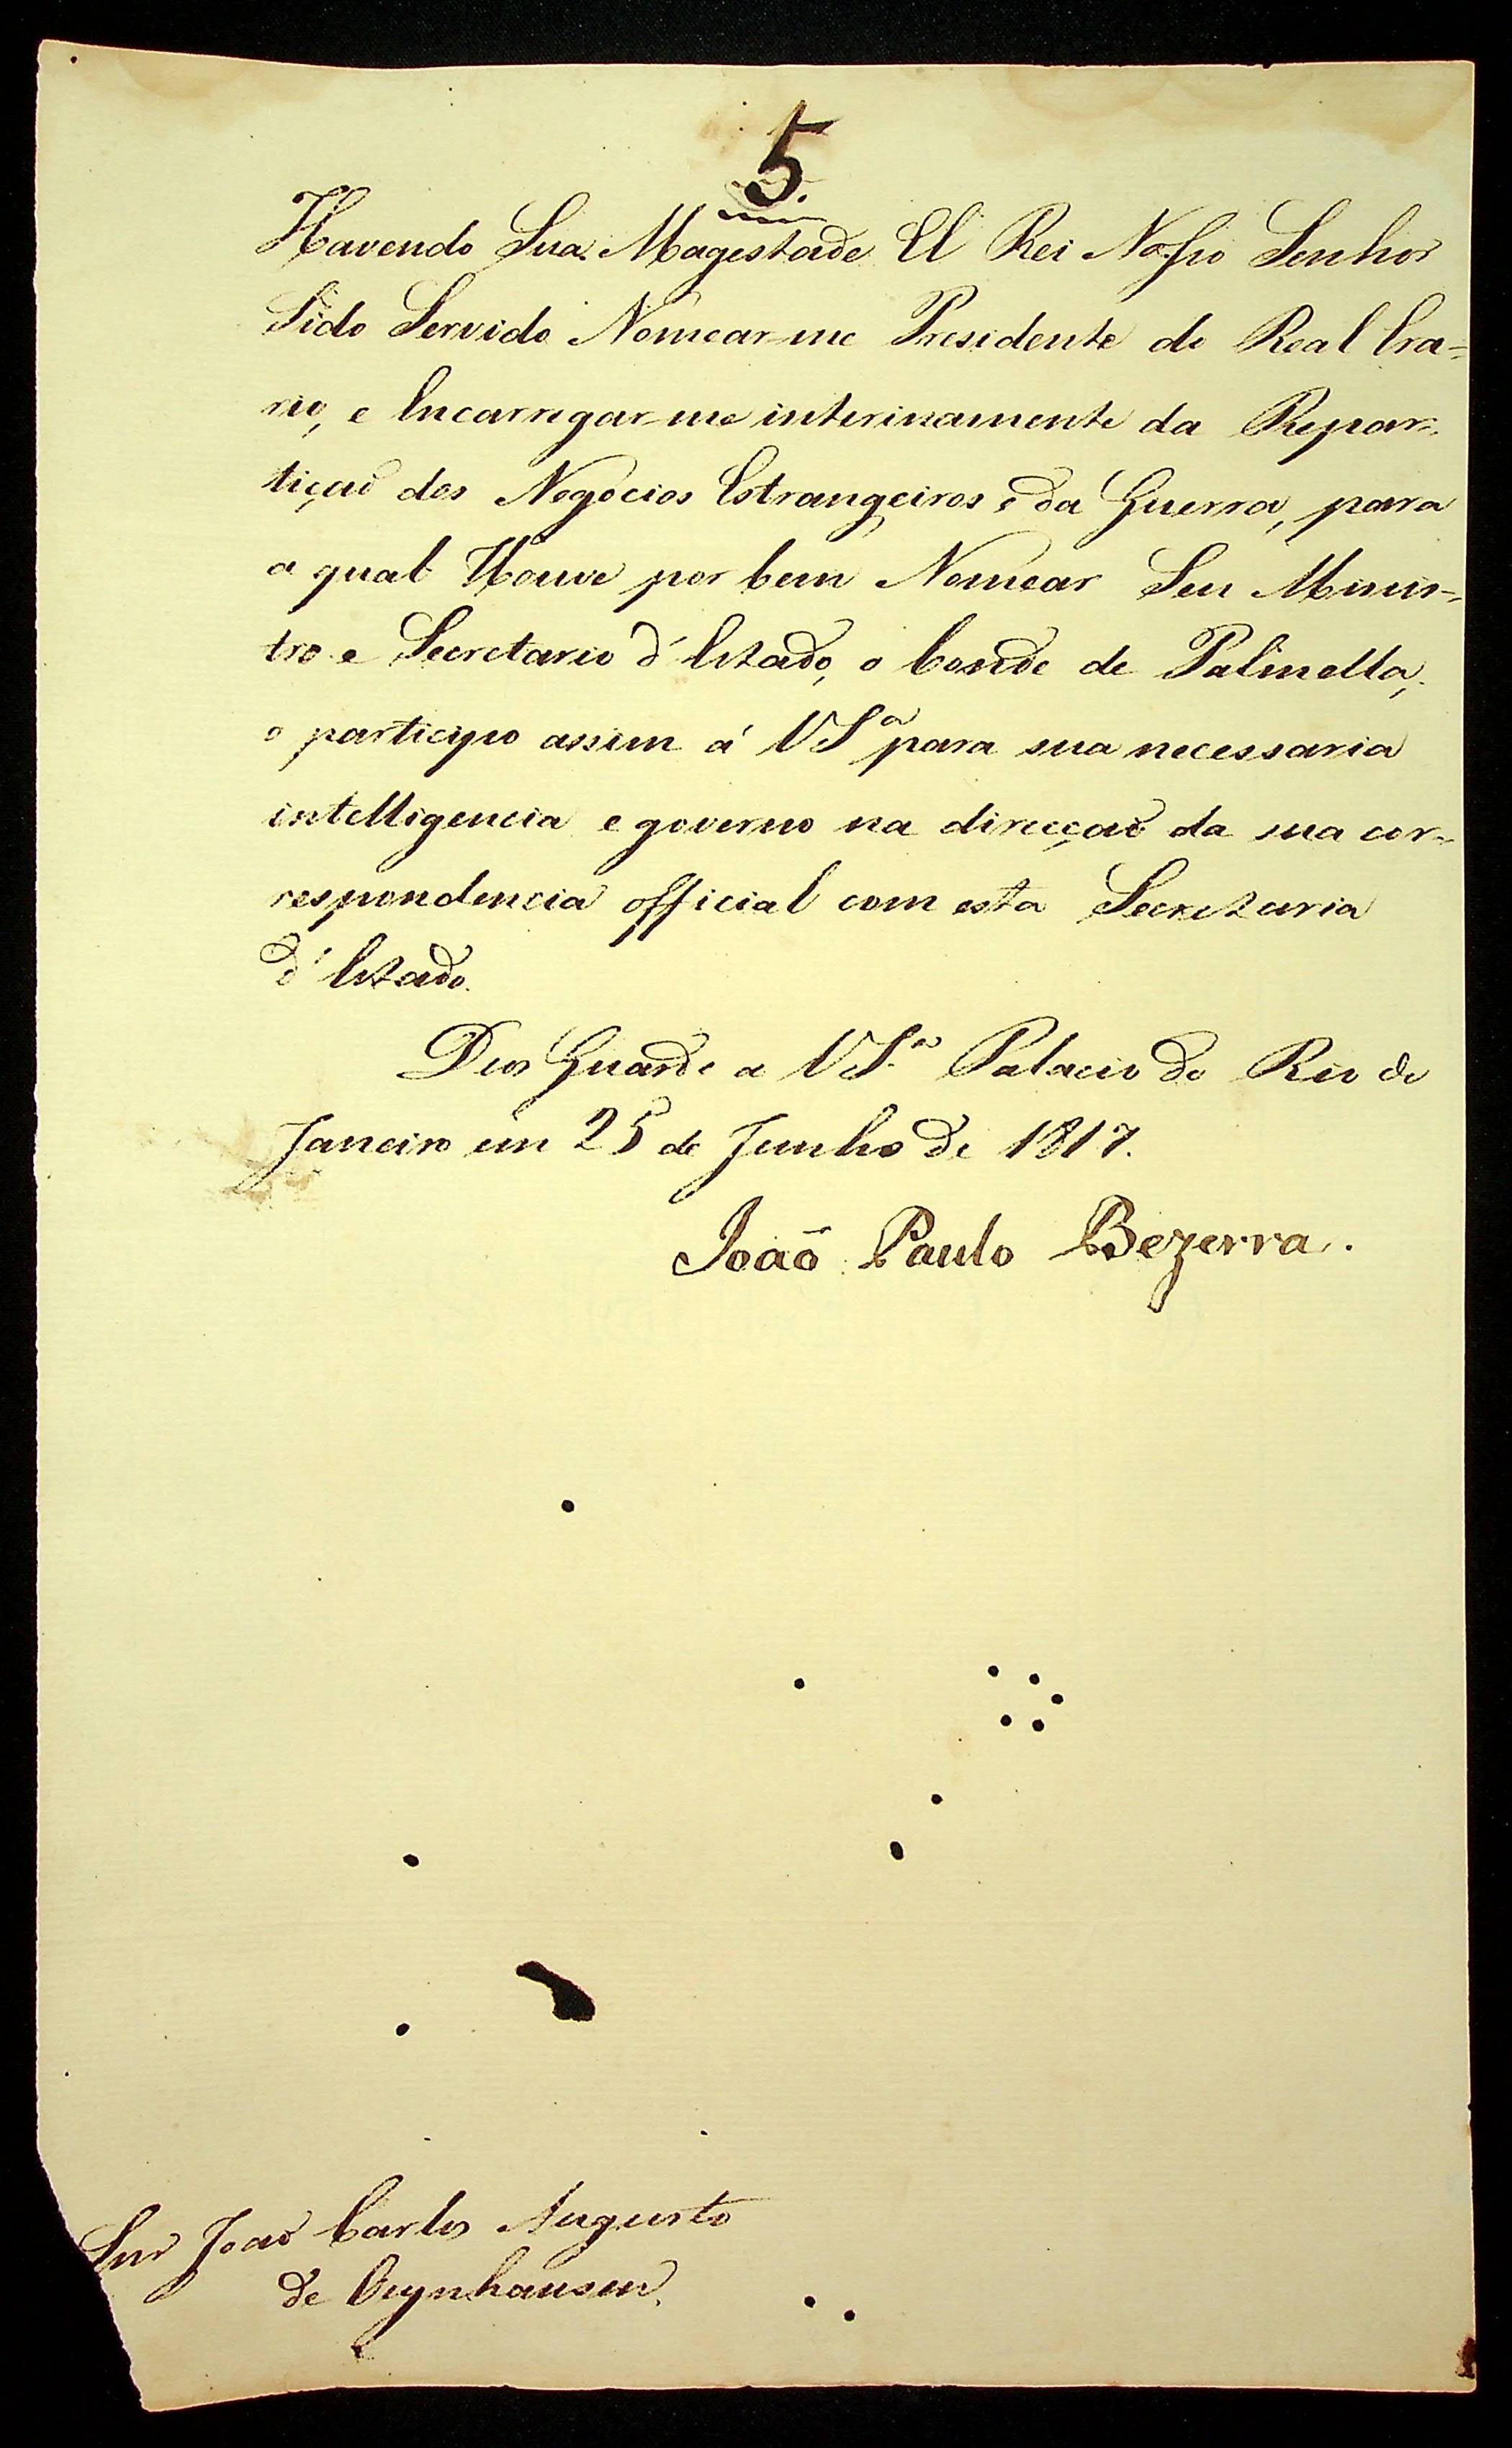 5.
Havendo Sua Magestade El Rei Nosso Senhor
Sido Servido Nomear-me Presidente do Real Era-
rio, e Encarregar-me interinamente da Repar-
tiçaõ dos Negocios Estrangeiros e da Guerra, para
a qual Houve por bem Nomear Seu Minis-
tro e Secretario d'Estado, o Conde de Palmella,
o participo assim á VSª para sua necessaria
intelligencia e governo na direcçaõ da sua cor-
respondencia official com esta Secretaria
d'Estado.
Deos Guarde a VSª Palacio do Rio de
Janeiro em 25 de Junho de 1817.
Joaõ Paulo Bezerra.
Snr Joaõ Carlos Augusto
de Oeynhausen.